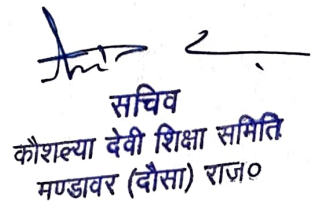 सचिव
कौशल्या देवी शिक्षा समिति
मण्डावर (दौसा) राज०